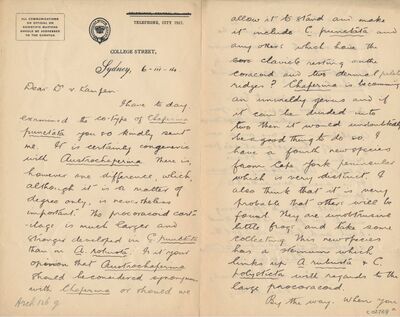 ALL COMMUNICATIONS
ON OFFICIAL OR
SCIENTIFIC MATTERS
SHOULD BE ADDRESSED
TO THE CURATOR.
TELEPHONE, CITY 1967.
COLLEGE STREET,
Sydney, 6-iii-14
Dear Dr v Kampen.
I have to day
examined the co-type of Chaperina
punctata you so kindly sent
me. It is certainly congeneric
with Austrochaperina. There is,
however one difference, which
although it is a matter of
degree only, is nevertheless
important. The procoracoid cart-
ilage is much larger and
stronger developed in C. punctata
than in A. robusta. Is it your
opinion that Austrochaperina
should be considered synonymous
with Chaperina or should we
Arch 126 g
allow it to stand and make
it include C. punctata and
any others which have the
clavicle resting on the
coracoid and two dermal palate
ridges? Chaperina is becoming
an unwieldy genus and if
it can be divided into
two then it would undoubtedly
be a good thing to do so. I
have a fourth new species
from Cape York peninsular
which is very distinct. I
also think that it is very
probable that others will be
found. They are unobtrusive
little frogs and take some
collecting. This new species
has a sternum which
links up A. robusta & C.
polysticta with regards to the
large procoracoid.
By the way. When you